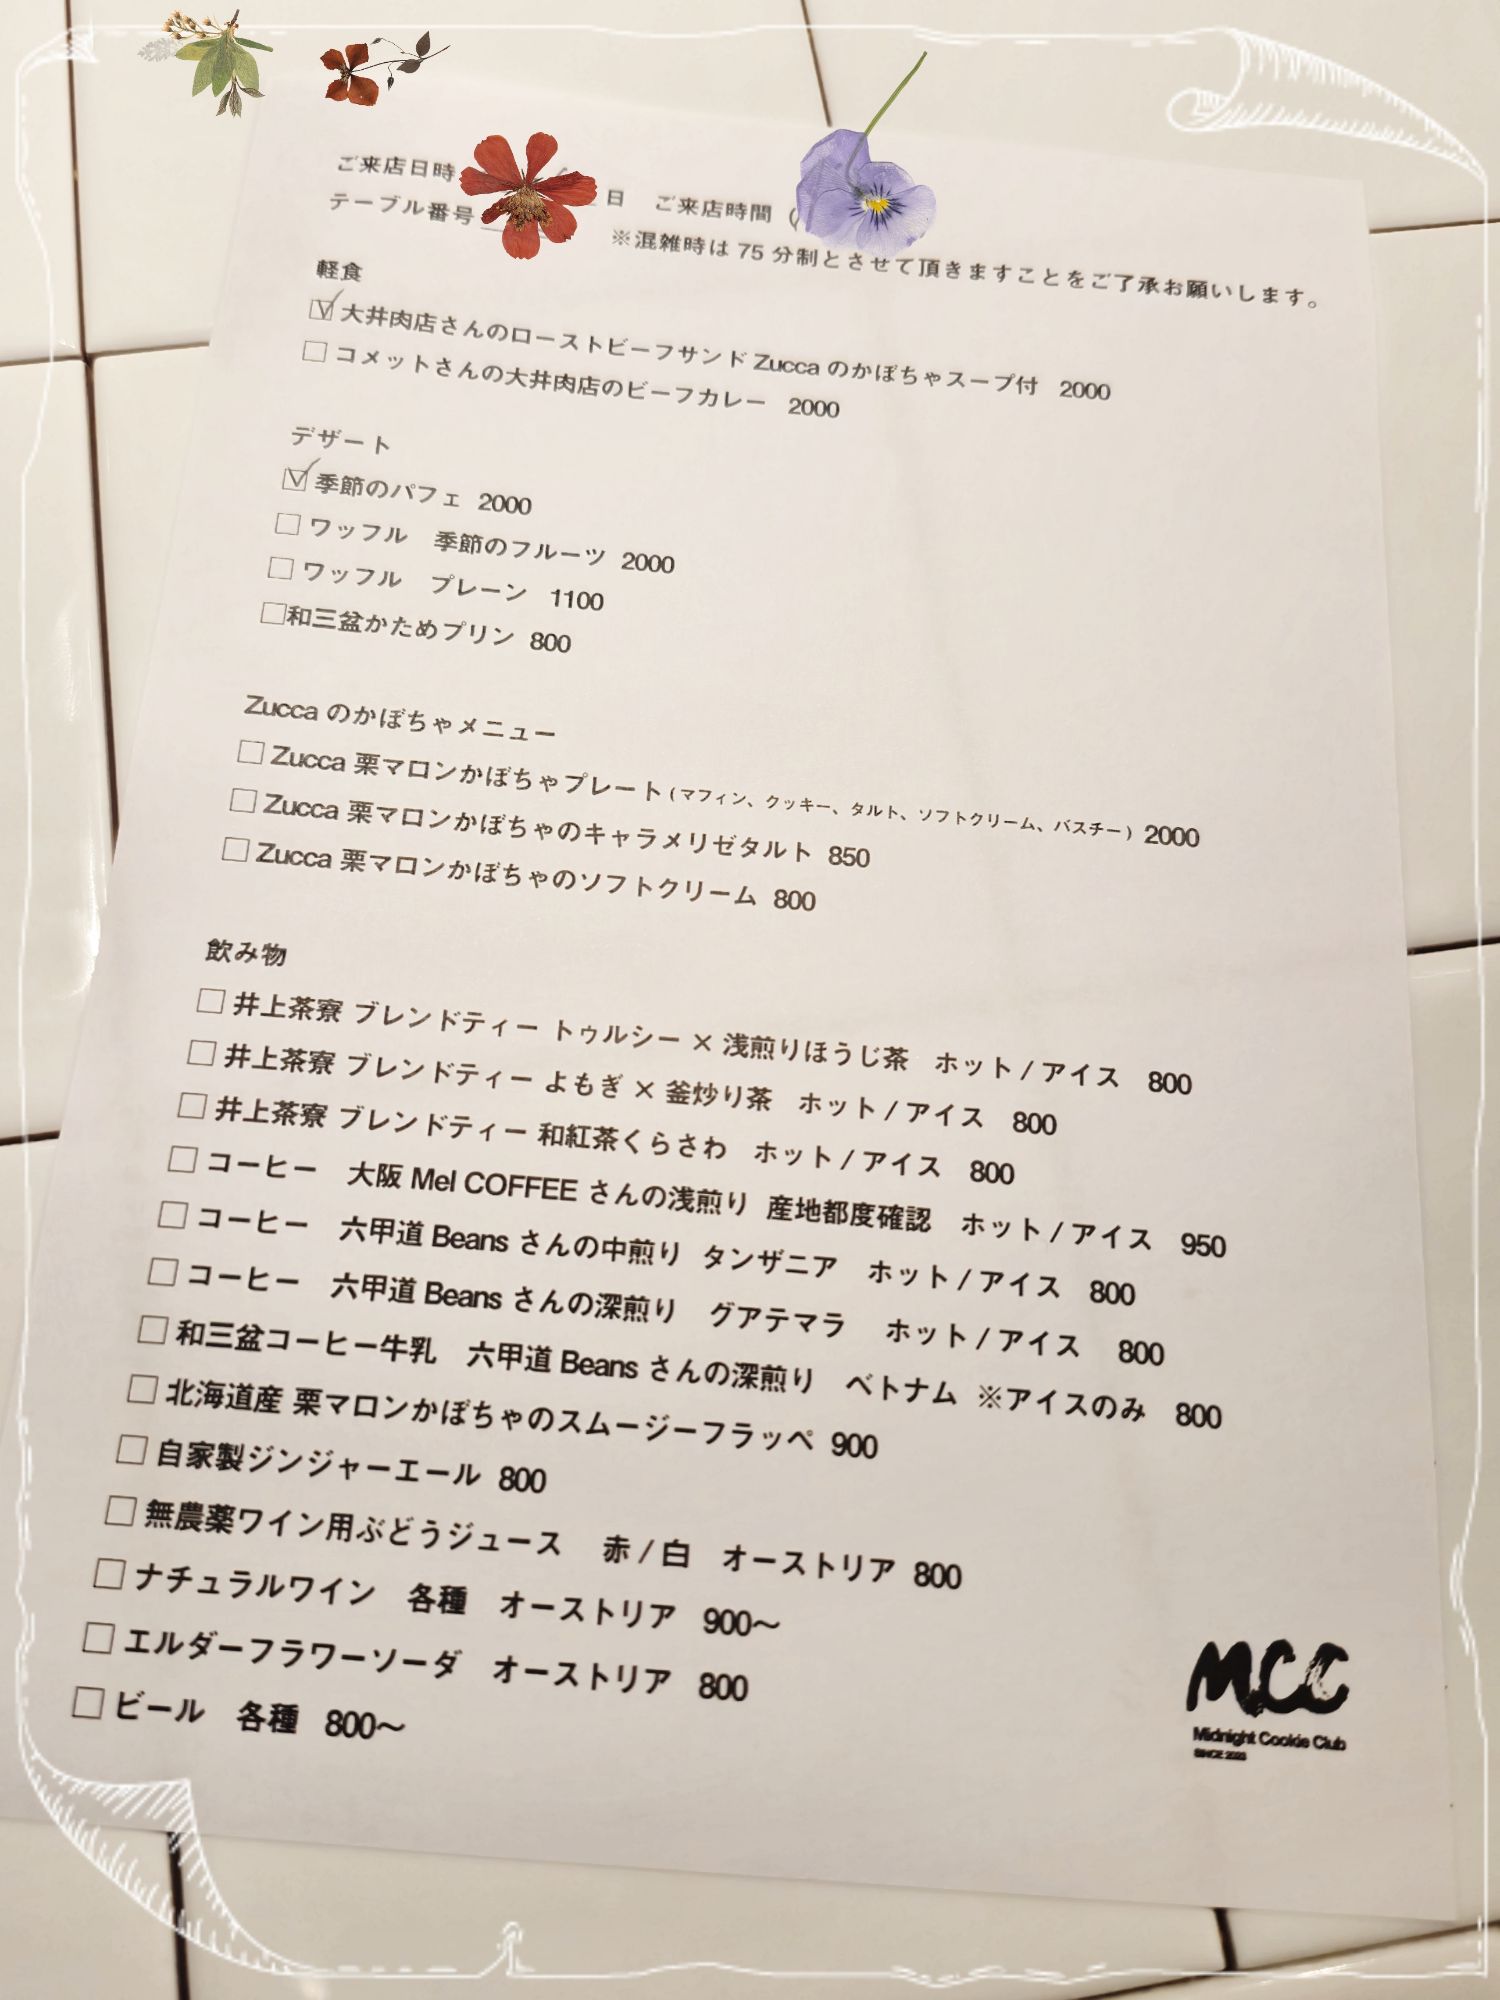 ご来店日時
日 ご来店時間 (
テーブル番号
※混雑時は 75 分制とさせて頂きますことをご了承お願いします。
軽食
☑ 大井肉店さんのローストビーフサンド Zucca のかぼちゃスープ付 2000
□ コメットさんの大井肉店のビーフカレー 2000
デザート
☑ 季節のパフェ 2000
□ ワッフル 季節のフルーツ 2000
□ ワッフル プレーン 1100
□和三盆かためプリン 800
Zucca のかぼちゃメニュー
□ Zucca 栗マロンかぼちゃプレート (マフィン、クッキー、タルト、ソフトクリーム、バスチー) 2000
□ Zucca 栗マロンかぼちゃのキャラメリゼタルト 850
□ Zucca 栗マロンかぼちゃのソフトクリーム 800
飲み物
□ 井上茶寮 ブレンドティー トゥルシー × 浅煎りほうじ茶 ホット / アイス 800
□ 井上茶寮 ブレンドティー よもぎ × 釜炒り茶 ホット / アイス 800
□ 井上茶寮 ブレンドティー 和紅茶くらさわ ホット / アイス 800
□ コーヒー 大阪 Mel COFFEE さんの浅煎り 産地都度確認 ホット / アイス 950
□ コーヒー 六甲道 Beans さんの中煎り タンザニア ホット / アイス 800
□ コーヒー 六甲道 Beans さんの深煎り グアテマラ ホット / アイス 800
□ 和三盆コーヒー牛乳 六甲道 Beans さんの深煎り ベトナム ※アイスのみ 800
□ 北海道産 栗マロンかぼちゃのスムージーフラッペ 900
□ 自家製ジンジャーエール 800
□ 無農薬ワイン用ぶどうジュース 赤 / 白 オーストリア 800
□ ナチュラルワイン 各種 オーストリア 900〜
□ エルダーフラワーソーダ オーストリア 800
□ ビール 各種 800〜
MCC
Midnight Cookie Club